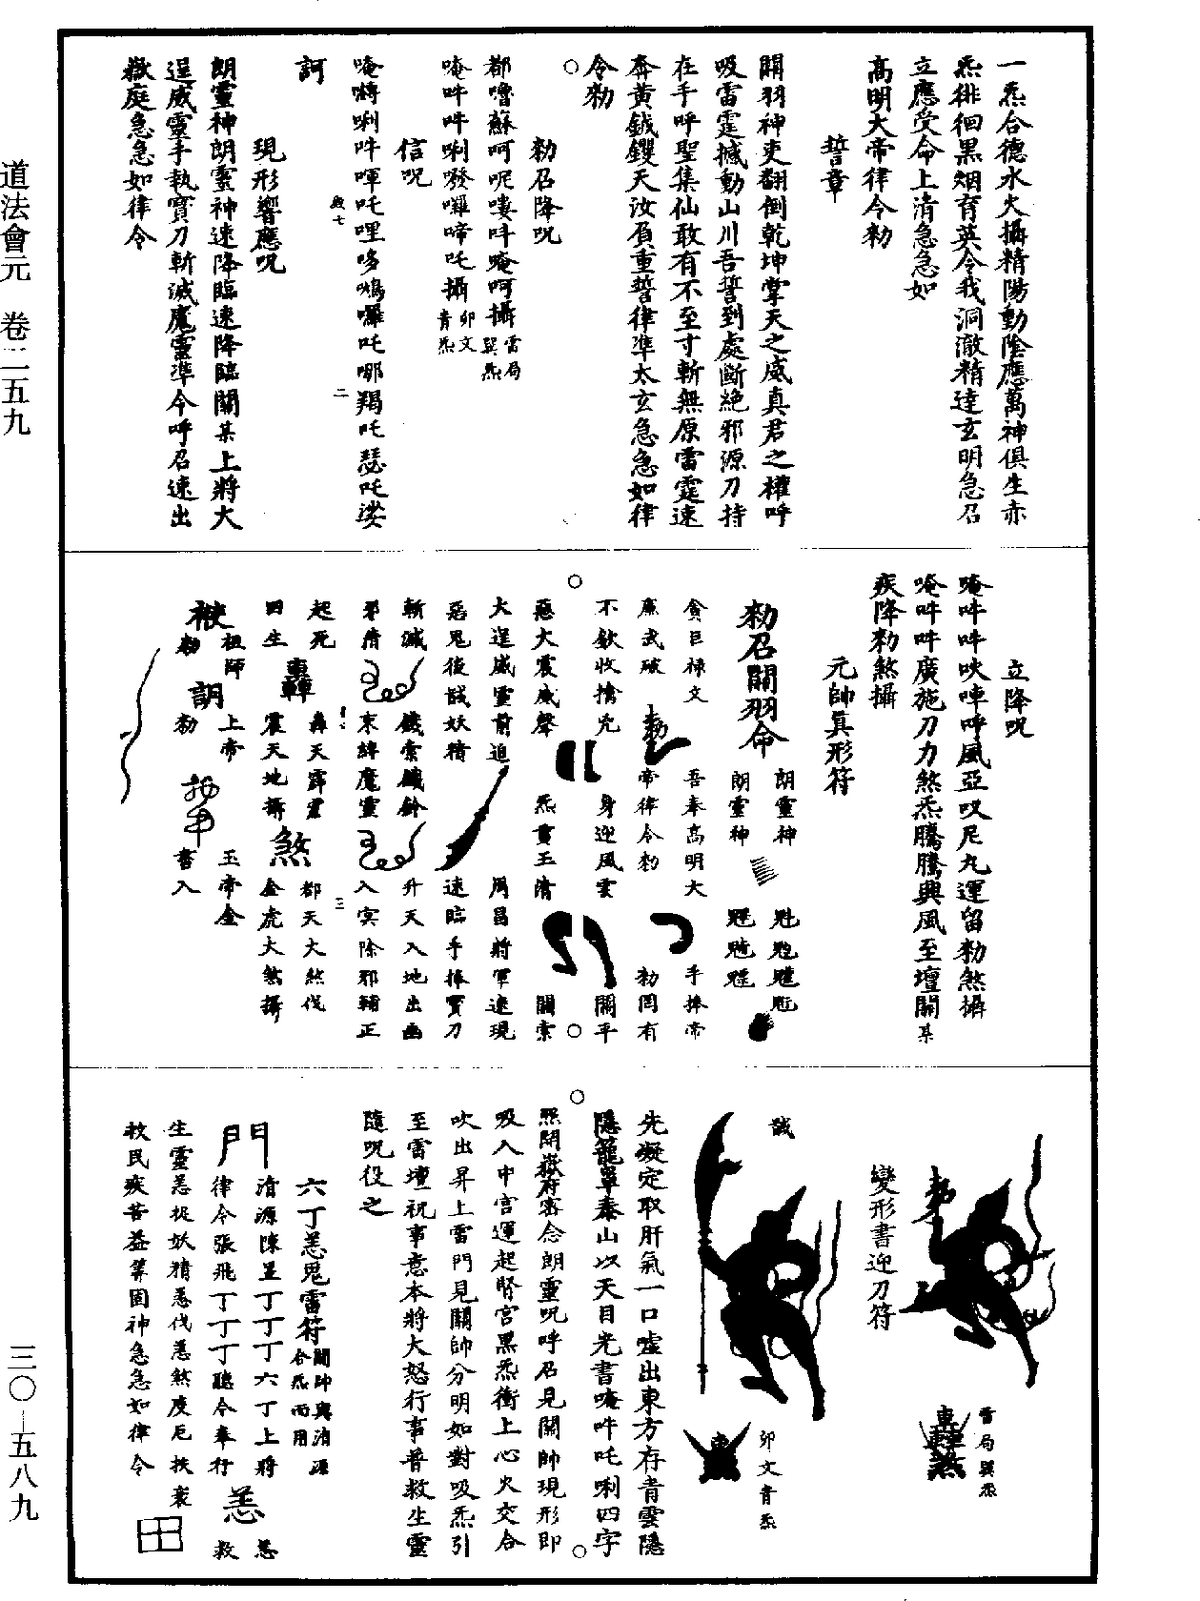 一炁合德水火攝精陽動陰應萬神俱生赤
炁徘徊黑烟育英令我洞澈精達玄明急召
立應受命上清急急如
高明大帝律令勑
誓章
關羽神吏翻倒乾坤掌天之威真君之權呼
吸雷霆撼動山川吾誓到處斷絕邪源刀持
在手呼聖集仙敢有不至寸斬無原雷霆速
奔黃鉞钁天汝負重誓律準太玄急急如律
令勑
勑召降咒
都嚕蘇呵呢嘍吽唵呵攝雷局巽炁
唵吽吽唎發囉啼吒攝卯文青炁
信咒
唵囀唎吽啤吒哩哆鳴囉吒哪羯吒瑟吒娑
訶
現形響應咒
朗靈神朗靈神速降臨速降臨關某上將大
逞威靈手執寶刀斬滅魔靈準令呼召速出
嶽庭急急如律令
立降咒
唵吽吽吷唓呼風亞叹尼丸運留勑煞攝
唵吽吽廣施刀力煞炁騰騰興風至壇關某
疾降勑煞攝
元帥真形符
勑召關羽命
朗靈神
朗靈神
魁
貪巨祿文
吾奉高明大
手捧帝
廉武破
勑
帝律令勑
勑罔有
不欽收擒兇
身迎風雲
關平
惡大震威聲
炁貫玉清
關索
大逞威靈前追
周昌將軍速現
惡鬼後馘妖精
速臨手捧寶刀
斬滅
鐵索鐵鈴
升天入地出幽
邪精
束縛魔靈
入冥除邪輔正
起死
轟天霹靂
都天大煞伐
四生
震天地攝
煞
金虎大煞攝
祖師
上帝
玉帝金
勑
勑
書入
變形書迎刀符
勑
雷局巽炁
馘
卯文青炁
先凝定取肝氣一口噓出東方存青雲隱
隱籠罩泰山以天目光書唵吽吒唎四字
㷩開嶽府密念朗靈咒呼召見關帥現形即
吸入中宮運起腎宮黑炁衝上心火交合
吹出昇上雷門見關帥分明如對吸炁引
至雷壇祝事意本將大怒行事普救生靈
隨咒役之
六丁恙鬼雷符關帥與清源合炁而用
門
清源陳昱丁丁丁六丁上將
恙
律令張飛丁丁丁聽令奉行
恙
救
生靈恙捉妖精恙伐恙煞度厄扶衰
救民疾苦益筭固神急急如律令
道法會元 卷二五九
三〇—五八九